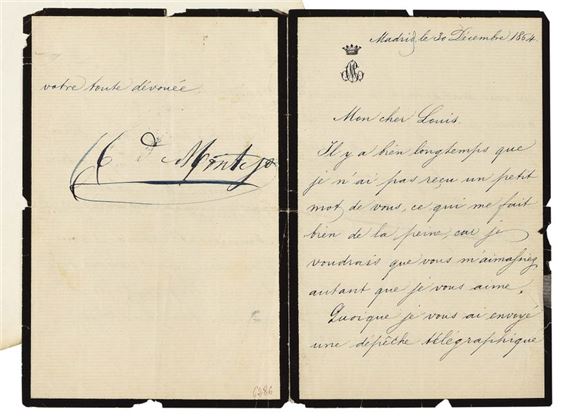 Madrid, le 30 Décembre 1864.
Mon cher Louis,
Il y a bien longtemps que
je n'ai pas reçu un petit
mot de vous, ce qui me fait
bien de la peine, car je
voudrais que vous m'aimassiez
autant que je vous aime.
Quoique je vous ai envoyé
une dépêche télégraphique
votre toute dévouée
de Montijo
6286